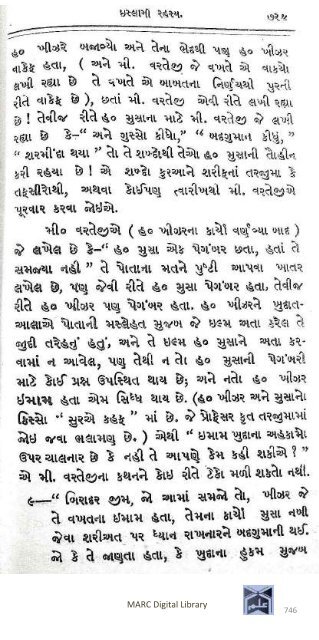 ઇસ્લામી રહસ્ય. ૭૨૫
હ૦ ખીઝરે બજાવ્યો અને તેના ભેદથી પણ હ૦ ખીઝર
વાકેફ હતા, ( અને મી. વરતેજી જે વખતે એ વાકયો
લખી રહ્યા છે તે વખતે એ બાબતના નિર્ણયથી પુરતી
રીતે વાકેફ છે ), છતાં મી. વરતેજી એવી રીતે લખી રહ્યા
છે ! તેવીજ રીતે હ૦ મુસાના માટે મી. વરતેજી જે લખી
રહ્યા છે કે–“ અને ગુસ્સો કીધો,” “ બદગુમાન કીધું, ”
“ શરમીંદા થયા ” તો તે શબ્દોથી તેઓ હ૦ મુસાની તૌહીન
કરી રહયા છે ! એ શબ્દો કુરઆને શરીફનાં તરજુમા કે
તફસીરોથી, અથવા કોઈપણ ત્વારીખથી મી. વરતેજીએ
પૂરવાર કરવા જોઈએ.
મી૦ વરતેજીએ ( હ૦ ખીઝરના કાર્યો વર્ણવ્યા બાદ )
જે લખેલ છે કે–“ હ૦ મુસા એક પેગંબર છતા, હતાં તે
સમજ્યા નહી ” તે પોતાના મતને પુષ્ટી આપવા ખાતર
લખેલ છે, પણ જેવી રીતે હ૦ મુસા પેગંબર હતા, તેવીજ
રીતે હ૦ ખીઝર પણ પેગંબર હતા. હ૦ ખીઝરને ખુદાત-
આલાએ પોતાની મસ્લેહત મુજબ જે ઇલ્મ અતા કરેલ તે
જુદી તરેહનું હતું, અને તે ઇલ્મ હ૦ મુસાને અતા કર-
વામાં ન આવેલ, પણ તેથી ન તો હ૦ મુસાની પેગંબરી
માટે કોઈ પ્રશ્ન ઉપસ્થિત થાય છે; અને નતો હ૦ ખીઝર
ઇમામ હતા એમ સિધ્ધ થાય છે. (હ૦ ખીઝર અને મુસાનો
કિસ્સો “ સુરએ કહફ ” માં છે. જે પ્રોફેસર કૃત તરજુમામાં
જોઈ જવા ભલામણ છે. ) એથી “ ઇમામ ખુદાના અહકામો
ઉપર ચાલનાર છે કે નહી તે આપણે કેમ કહી શકીએ ? ”
એ મી. વરતેજીના કથનને કોઇ રીતે ટેકો મળી શકતો નથી.
૯—“ બિરાદર જીમ, જો આમાં સમજે તો, ખીઝર જે
તે વખતના ઇમામ હતા, તેમના કાર્યો મુસા નબી
જેવા શરીઅત પર ધ્યાન રાખનારને બદગુમાની થઈ.
જો કે તે જાણતા હતા, કે ખુદાના હુકમ મુજબ
MARC Digital Library
746